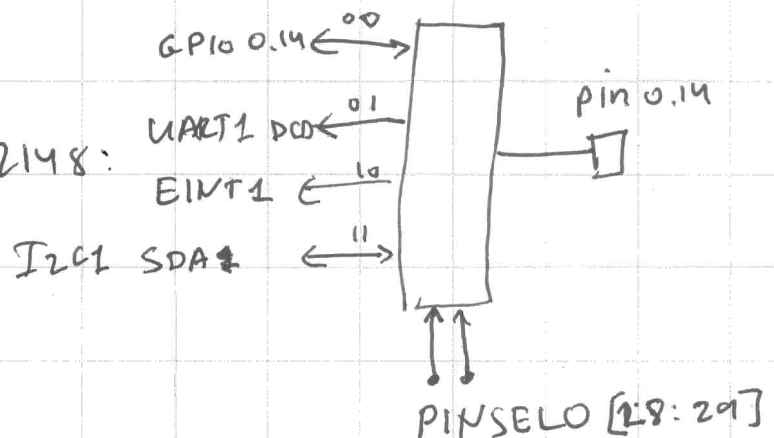 GPIO 0.14 00
pin 0.14
UART1 DCD 01
2148:
EINT1 10
I2C1 SDA1 11
PINSEL0 [28:29]